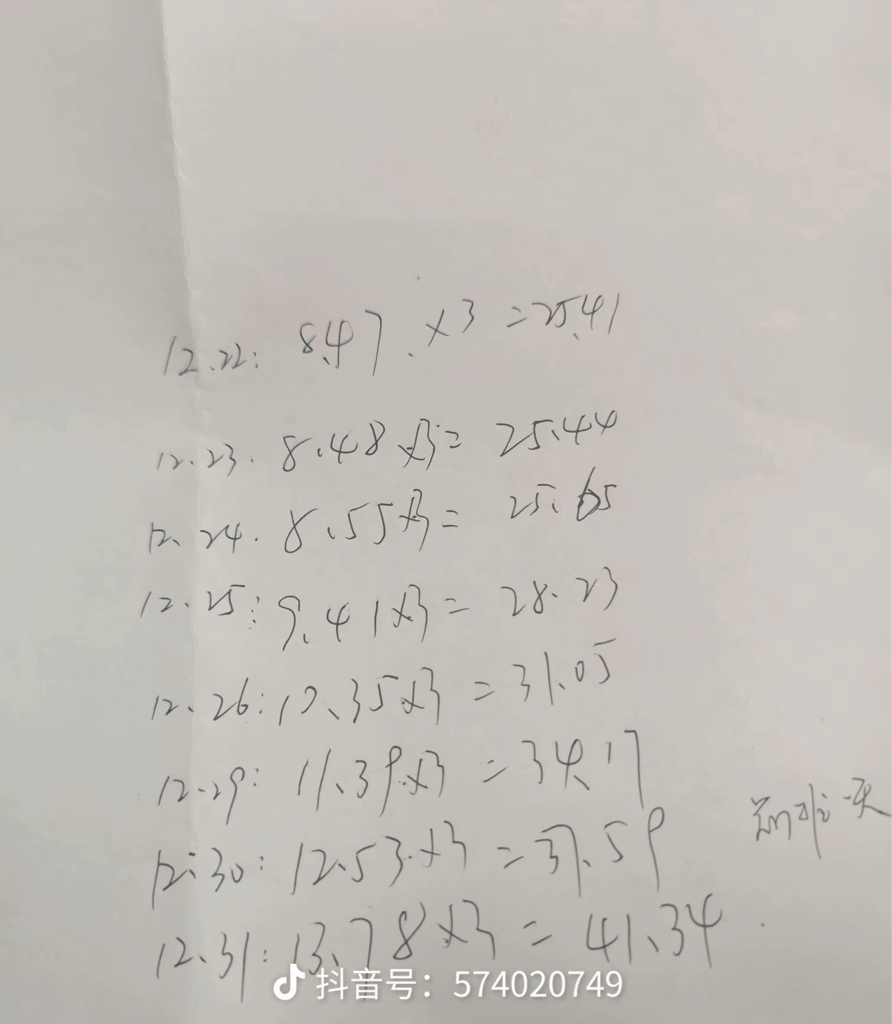 12.22: 8.47 × 3 = 25.41
12.23. 8.48 × 3 = 25.44
12.24. 8.55 × 3 = 25.65
12.25: 9.41 × 3 = 28.23
12.26: 10.35 × 3 = 31.05
12.29: 11.39 × 3 = 34.17
12.30: 12.53 × 3 = 37.59
一天
12.31: 13.78 × 3 = 41.34
抖音号: 574020749